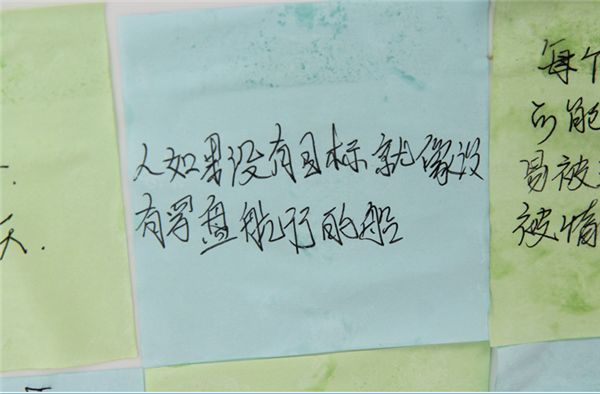 人如果没有目标就像没
有罗盘航行的船
每个
可能
易被
被情
天.